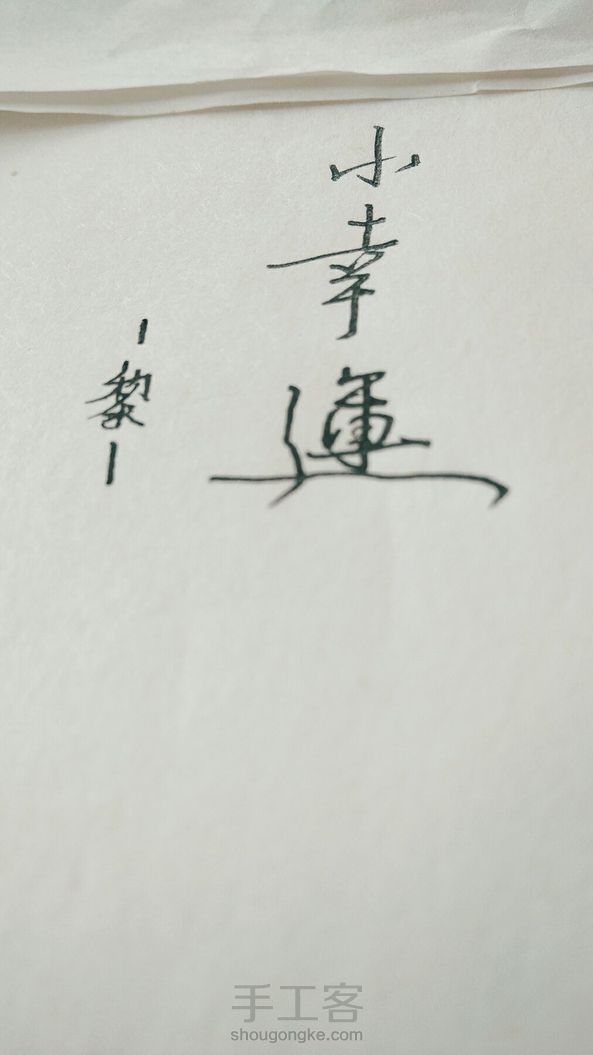 小幸運
-黎-
手工客
shougongke.com